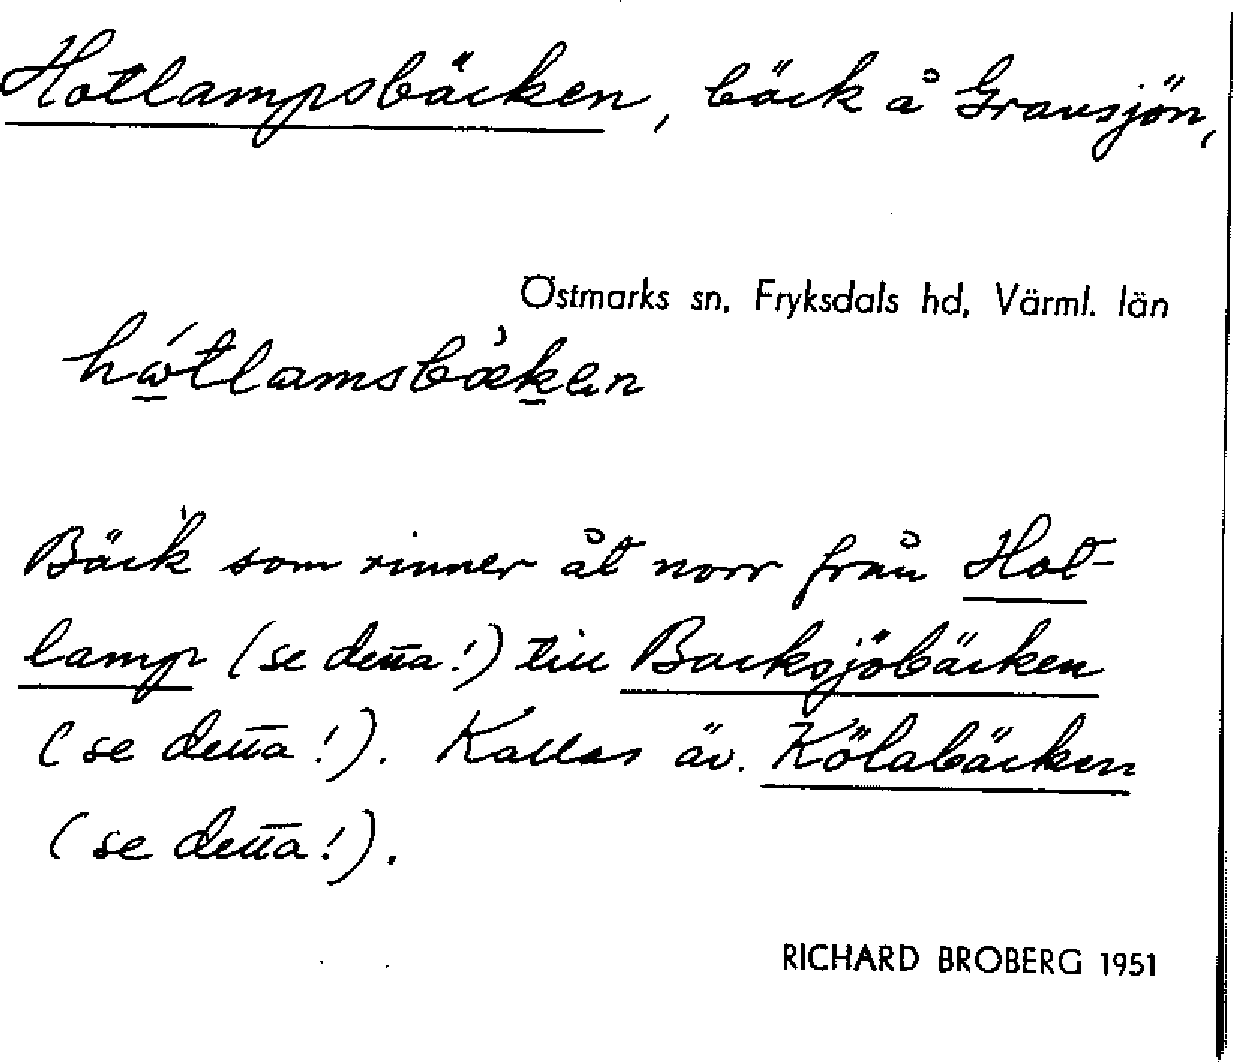 Hotlampsbäcken, bäck å Gransjön,
Östmarks sn, Fryksdals hd, Värml. län
Bäck som rinner åt norr från Hot-
lamp (se detta!) till Backsjöbäcken
(se detta!). Kallas äv. Kölabäcken
(se detta!).
RICHARD BROBERG 1951